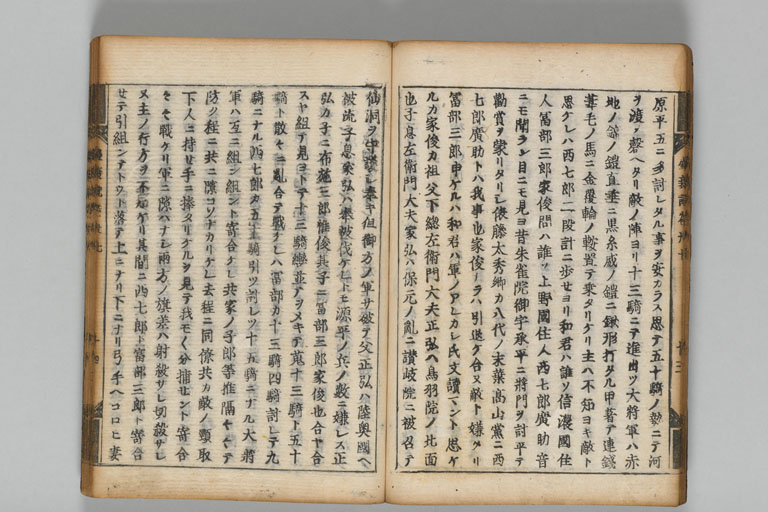 原平五ニ多討レタル事ヲ安カラス思テ五十騎ノ勢ニテ河
ヲ渡ノ磬ヘタリ敵ノ陣ヨリ十三騎ニテ進出ツ大将軍ハ赤
地ノ錦ノ鎧直垂ニ黒糸威ノ鎧ニ鍬形打タル甲著テ連銭
葦毛ノ馬ニ金覆輪ノ鞍置テ乗タリケリ主ハ不知ヨキ敵ト
思ケレハ西七郎二段計ニ歩セヨリ和君ハ誰ソ信濃國住
人冨部三郎家俊問ハ誰ソ上野國住人西七郎廣助音
ニモ聞ラン目ニモ見ヨ昔朱雀院御宇承平ニ將門ヲ討平テ
勸賞ヲ蒙リタリシ俵藤太秀郷カ八代ノ末葉高山黨ニ西
七郎廣助トハ我事也家俊ナラハ引退ケ合ヌ敵ト嫌タリ
冨部三郎申ケルハ和君ハ軍ノアレカシ氏文讀マント思ケ
ルカ家俊カ祖父下總左衛門大夫正弘ハ鳥羽院ノ北面
也子息左衛門大夫家弘ハ保元ノ亂ニ讃岐院ニ被召テ
仙洞ヲ守護シ奉キ但御方ノ軍サ破テ父正弘ハ陸奥國ヘ
被流子息家弘ハ奉被伐ケレトモ源平ノ兵ノ數ニ嫌レス正
弘カ子ニ布施三郎惟俊其子ニ冨部三郎家俊也合ヤ合
スヤ組テ見ヨトテ十三騎轡並テヲメキテ蒐十三騎ト五十
騎ト散々ニ亂合テ戰ケレハ冨部カ十三騎四騎討レテ九
騎ニナル西七郎カ五十騎引ツ討レツ十五騎ニナル大將
軍ハ互ニ組ン組ント寄合ケレ共家ノ子郎等推隔
防ク程ニ共ニ隙コソナカリケレ去程ニ同僚共カ敵ノ頸取
下人ニ持セ手ニ捧タリケルヲ見テ我モ〱分捕セント寄合
セヽ戰ケリ軍ニ隙ハナシ兩方ノ旗差ハ射殺サレ切殺サレ
又主ノ行方ヲ不知ケリ其間ニ西七郎ト冨部三郎ト寄合
セテ引組ンテトウト落テ上ニナリ下ニナリ弓ノ手ヘコロヒ妻